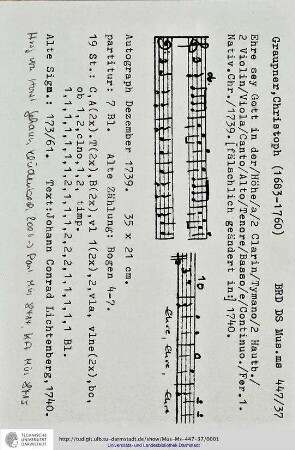 Graupner, Christoph (1683-1760) BRD DS Mus.ms 447/37
Ehre sey Gott in der/Höhe/a/2 Clarin/Tympano/2 Hautb./
2 Violin/Viola/Canto/Alto/Tenore/Basso/e/Continuo./Fer.1.
Nativ.Chr./1739.[fälschlich geändert in:] 1740.
10
Ehre, Ehre, Ehre
Autograph Dezember 1739. 35 x 21 cm.
partitur: 7 Bl. Alte Zählung: Bogen 4-7.
19 St.: C,A(2x),T(2x),B(2x),vl 1(2x),2,vla, vlne(2x),bc,
ob 1,2,clno.1,2, timp.
Alte Sign.: 173/61. Text: Johann Conrad Lichtenberg, 1740.
TECHNISCHE
UNIVERSITÄT
DARMSTADT
http://tudigit.ulb.tu-darmstadt.de/show/Mus-Ms-447-37/0001
Universitäts- und Landesbibliothek Darmstadt